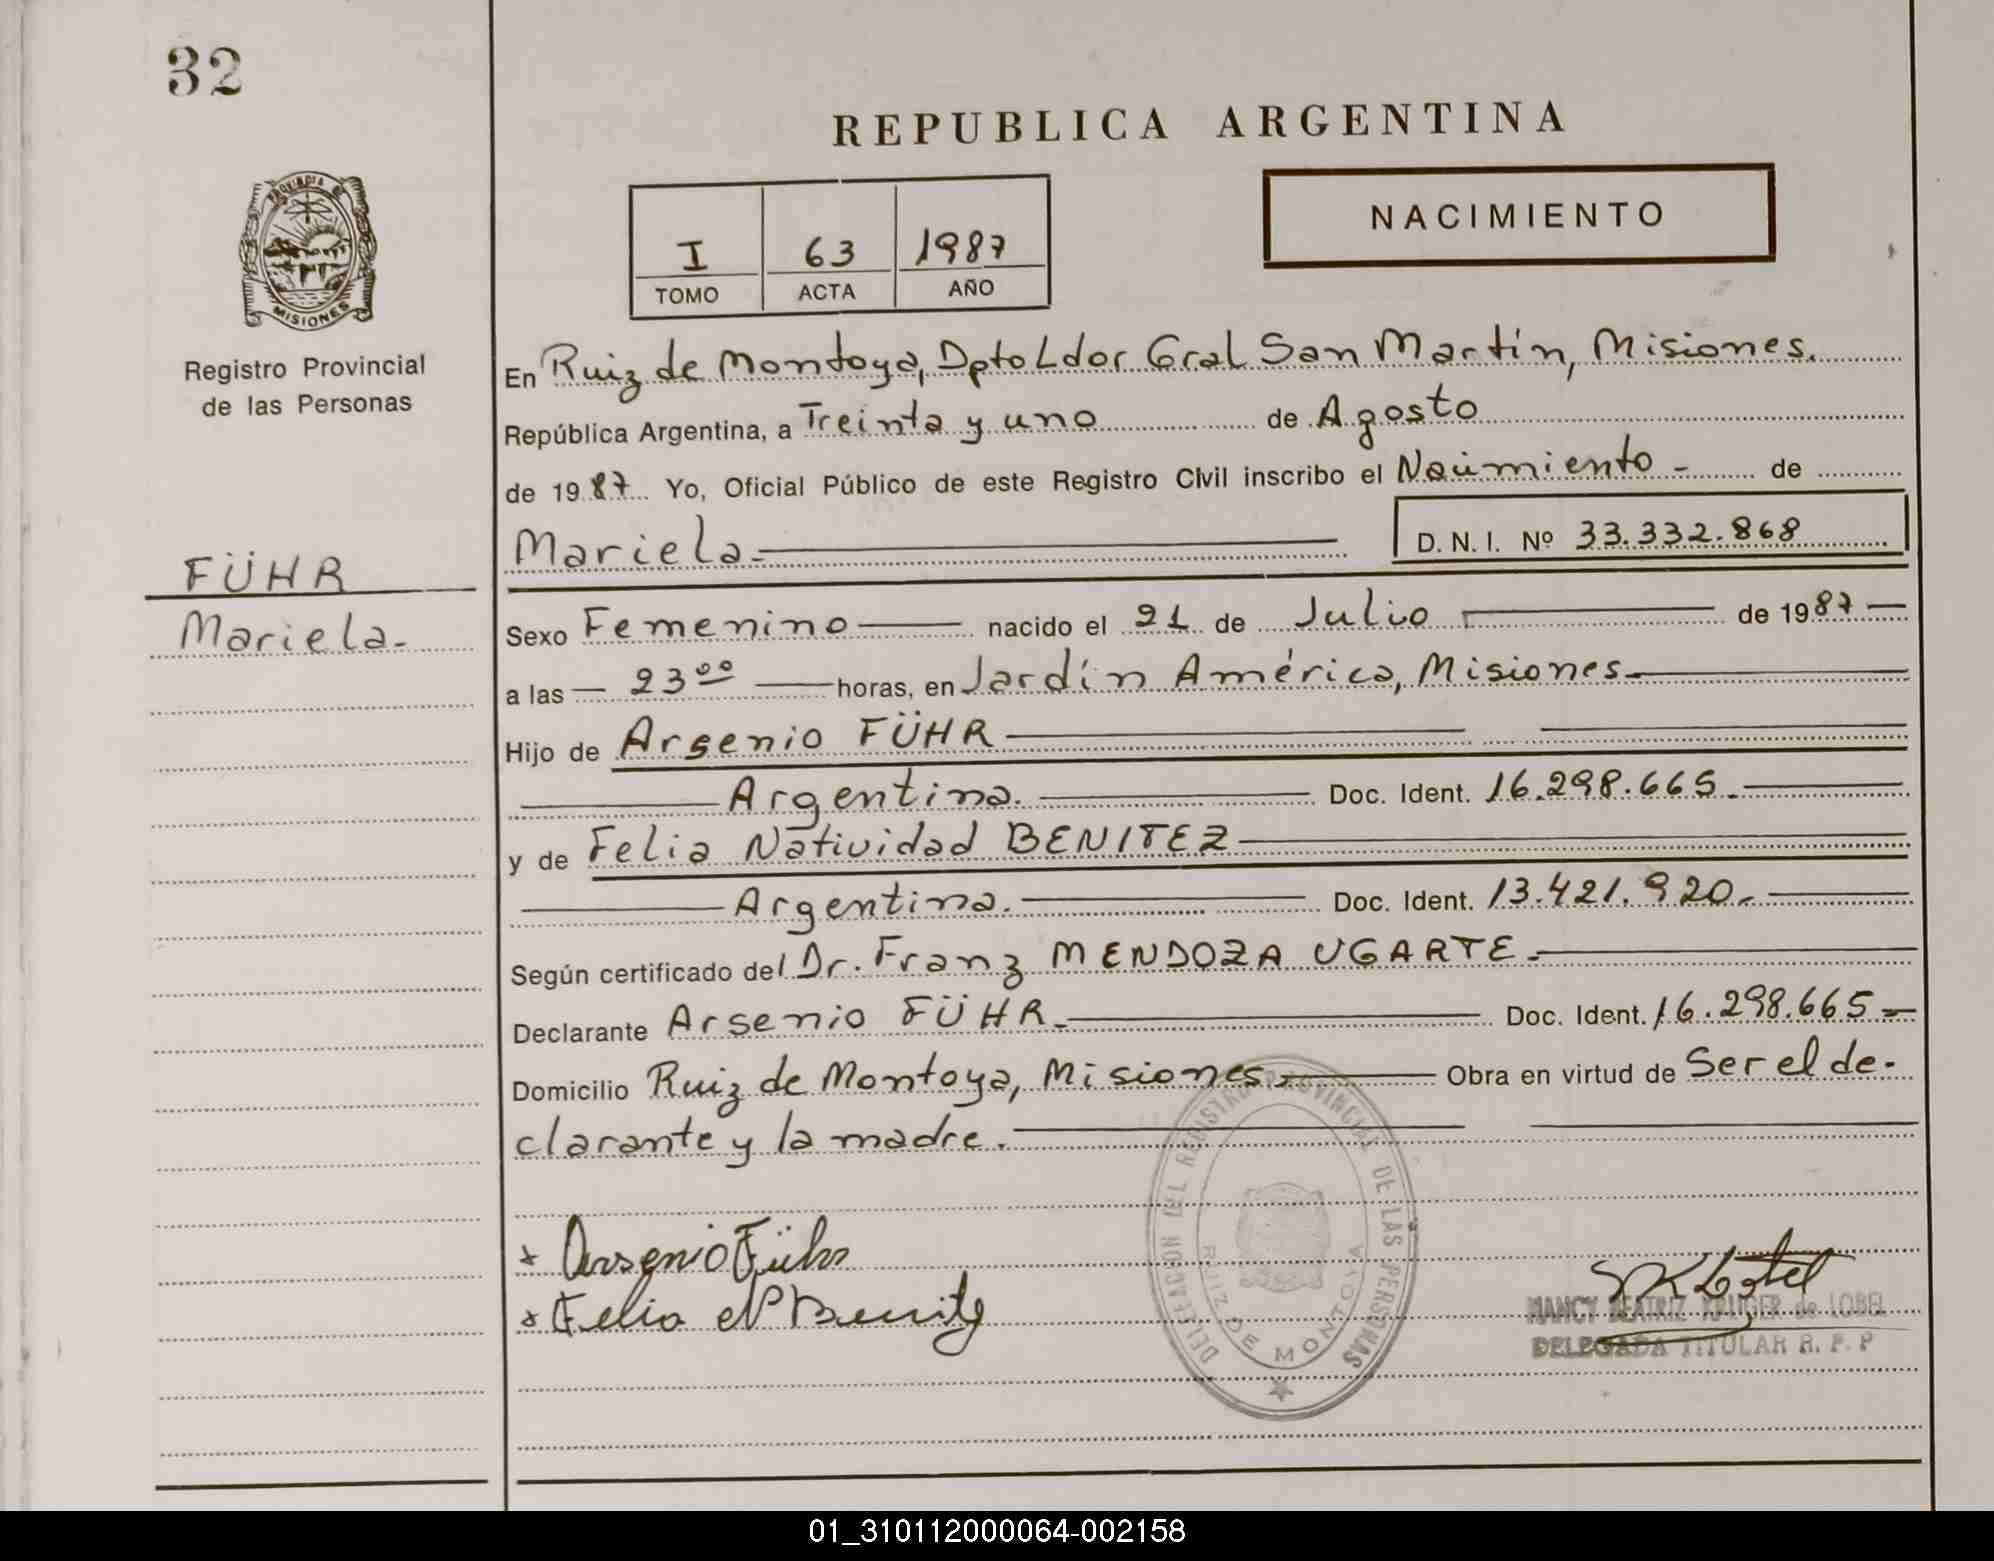 32
REPUBLICA ARGENTINA
PROVINCIA DE
MISIONES
I 63 1987
TOMO ACTA AÑO
NACIMIENTO
Registro Provincial
de las Personas
FÜHR
Mariela.
En Ruiz de Montoya, Dpto Ldor Gral San Martín, Misiones.
República Argentina, a Treinta y uno de Agosto
de 1987 Yo, Oficial Público de este Registro Civil inscribo el Nacimiento - de
Mariela. D. N. I. Nº 33.332.868
Sexo Femenino nacido el 21 de Julio de 1987
a las 23⁰⁰ horas, en Jardín América, Misiones.
Hijo de Arsenio FÜHR
Argentina. Doc. Ident. 16.298.665.
y de Felia Natividad BENITEZ
Argentina. Doc. Ident. 13.421.920.
Según certificado del Dr. Franz MENDOZA UGARTE.
Declarante Arsenio FÜHR. Doc. Ident. 16.298.665
Domicilio Ruiz de Montoya, Misiones. Obra en virtud de Ser el de-
clarante y la madre.
DELEGACION DEL REGISTRO PROVINCIAL DE LAS PERSONAS
RUIZ DE MONTOYA
x Arsenio Führ
x Felia N Benitez
NANCY BEATRIZ KRUGER de LOBEL
DELEGADA TITULAR R. P. P
01_310112000064-002158